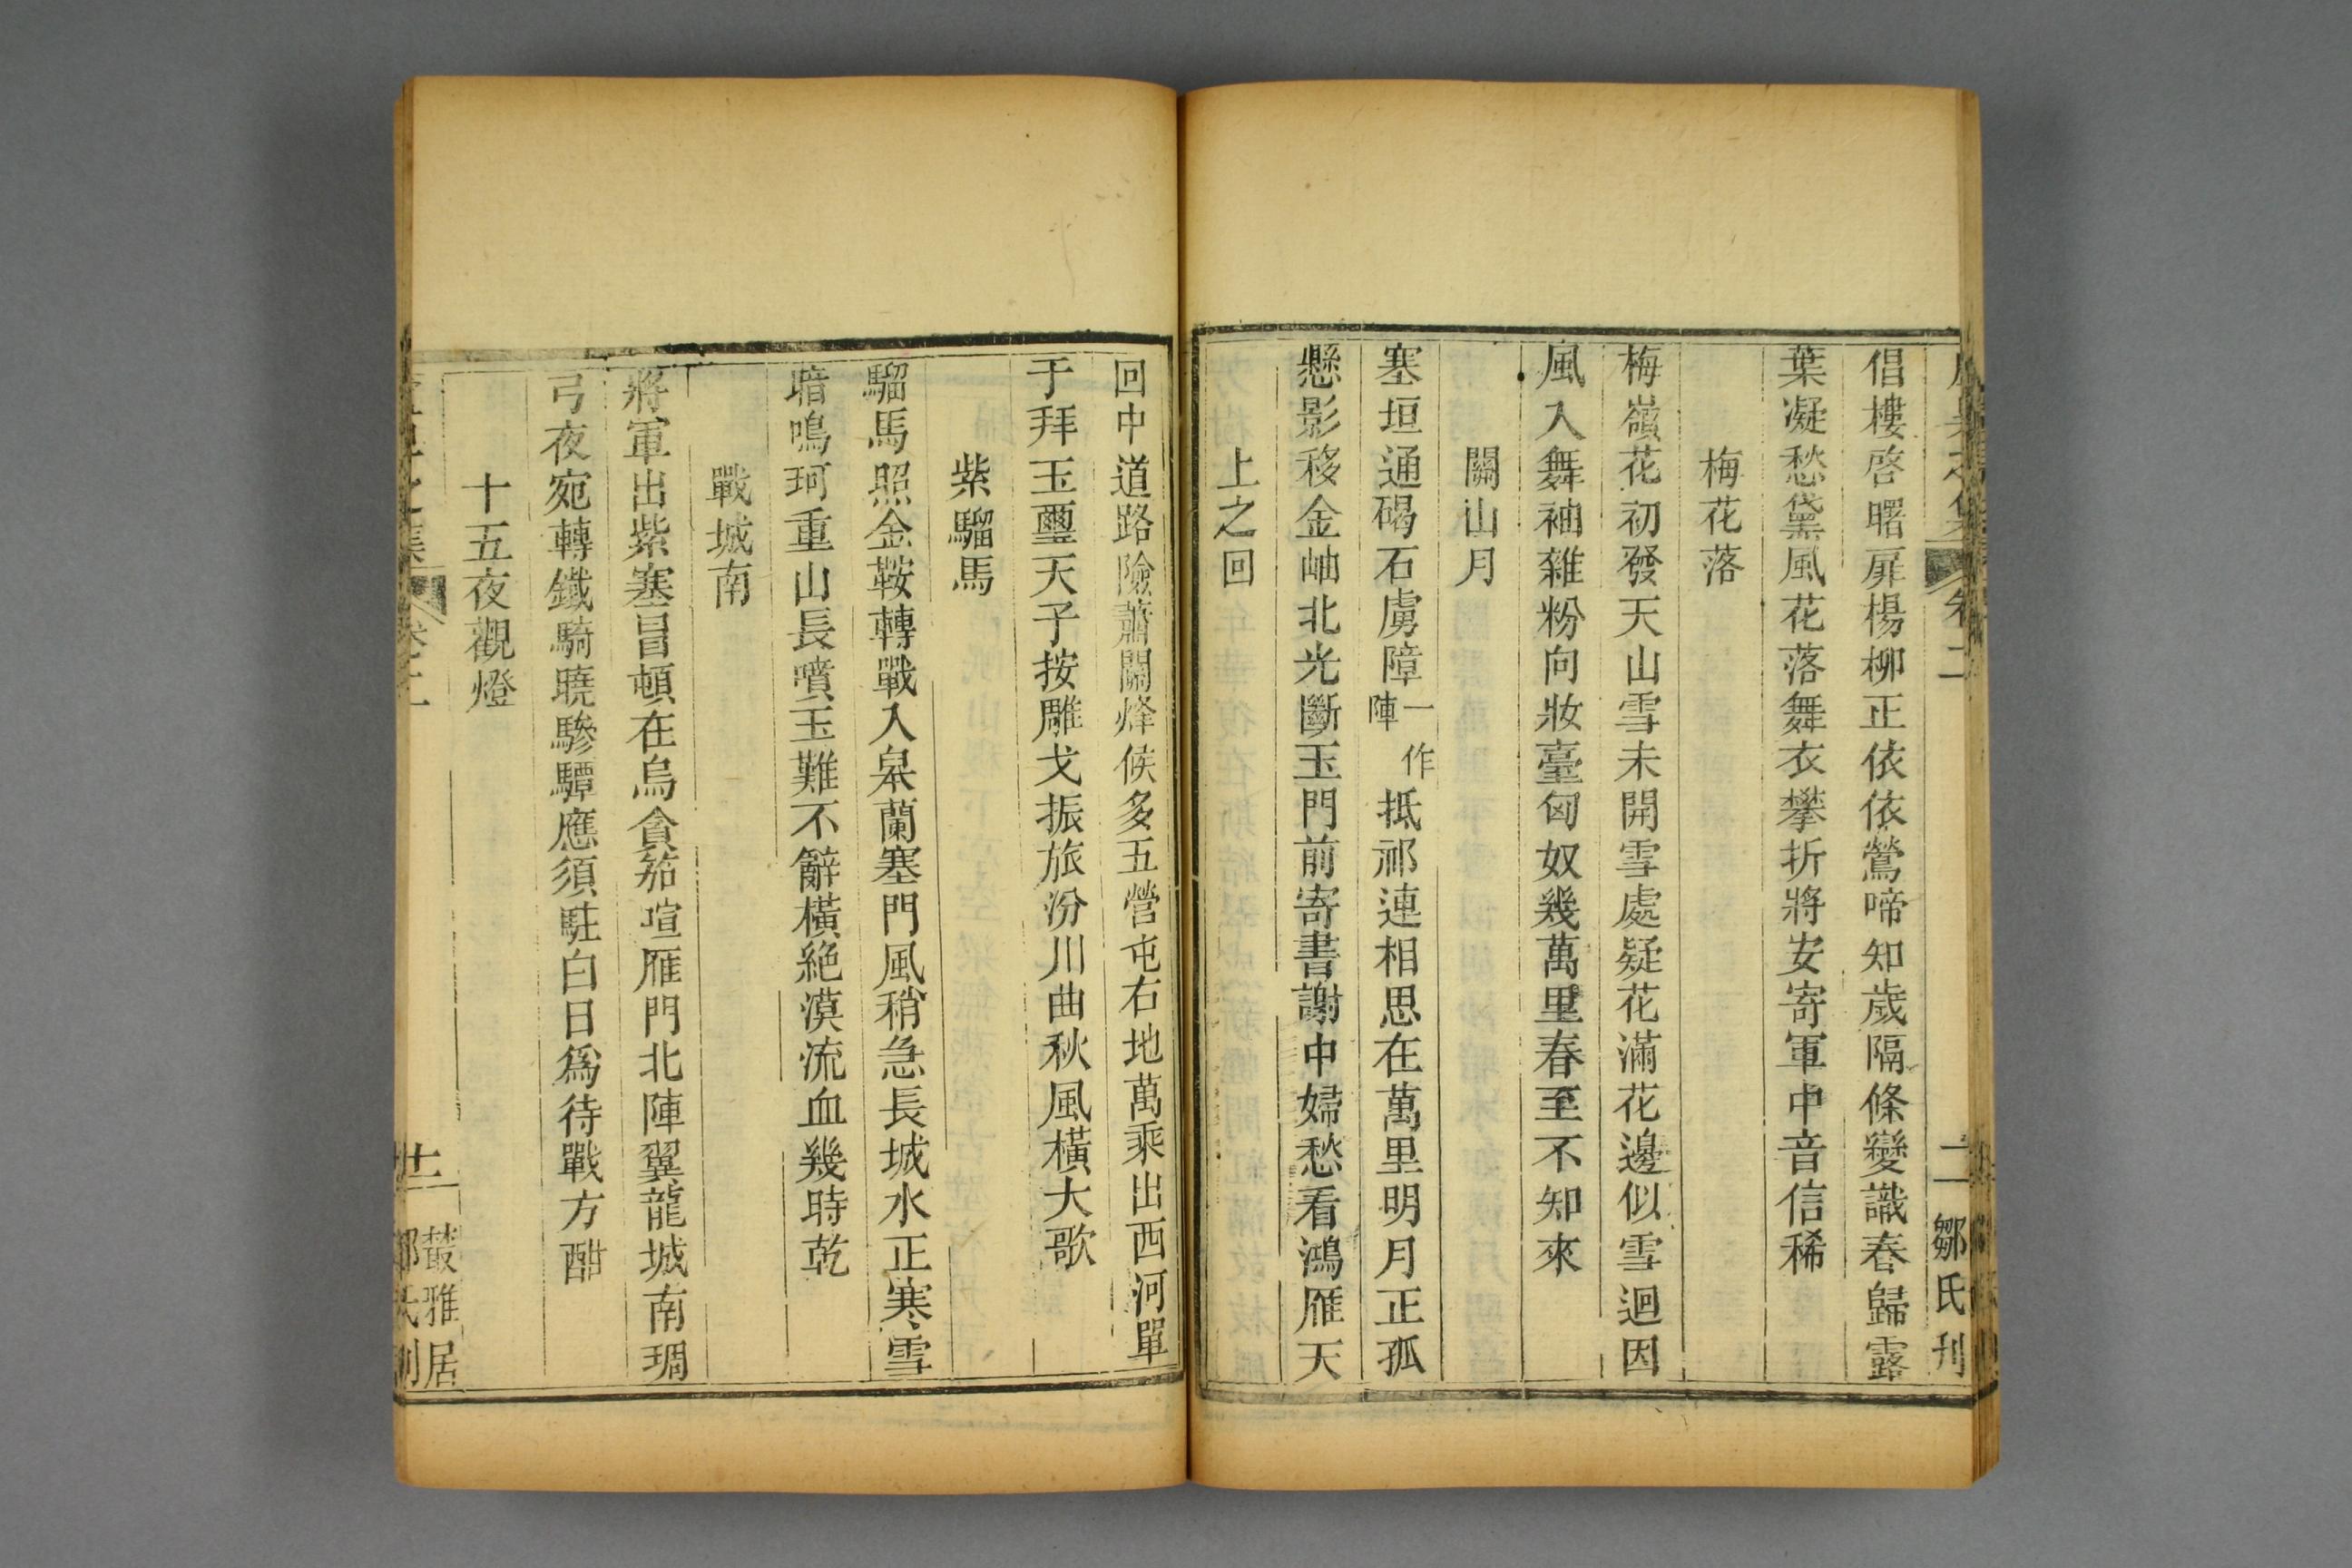 卷二 二 鄒氏刊
倡樓啓曙扉楊柳正依依鶯啼知歲隔條變識春歸露
葉凝愁黛風花落舞衣攀折將安寄軍中音信稀
梅花落
梅嶺花初發天山雪未開雪處疑花滿花邊似雪迴因
風入舞袖雜粉向妝臺匈奴幾萬里春至不知來
關山月
塞垣通碣石虜障一作陣抵祁連相思在萬里明月正孤
懸影移金岫北光斷玉門前寄書謝中婦愁看鴻雁天
上之回
回中道路險蕭關烽候多五營屯右地萬乘出西河單
于拜玉璽天子按雕戈振旅汾川曲秋風橫大歌
紫騮馬
騮馬照金鞍轉戰入皋蘭塞門風稍急長城水正寒雪
暗鳴珂重山長噴玉難不辭橫絶漠流血幾時乾
戰城南
將軍出紫塞冒頓在烏貪笳喧雁門北陣翼龍城南琱
弓夜宛轉鐵騎曉驂驔應須駐白日爲待戰方酣
十五夜觀燈
之集 卷二 叢雅居